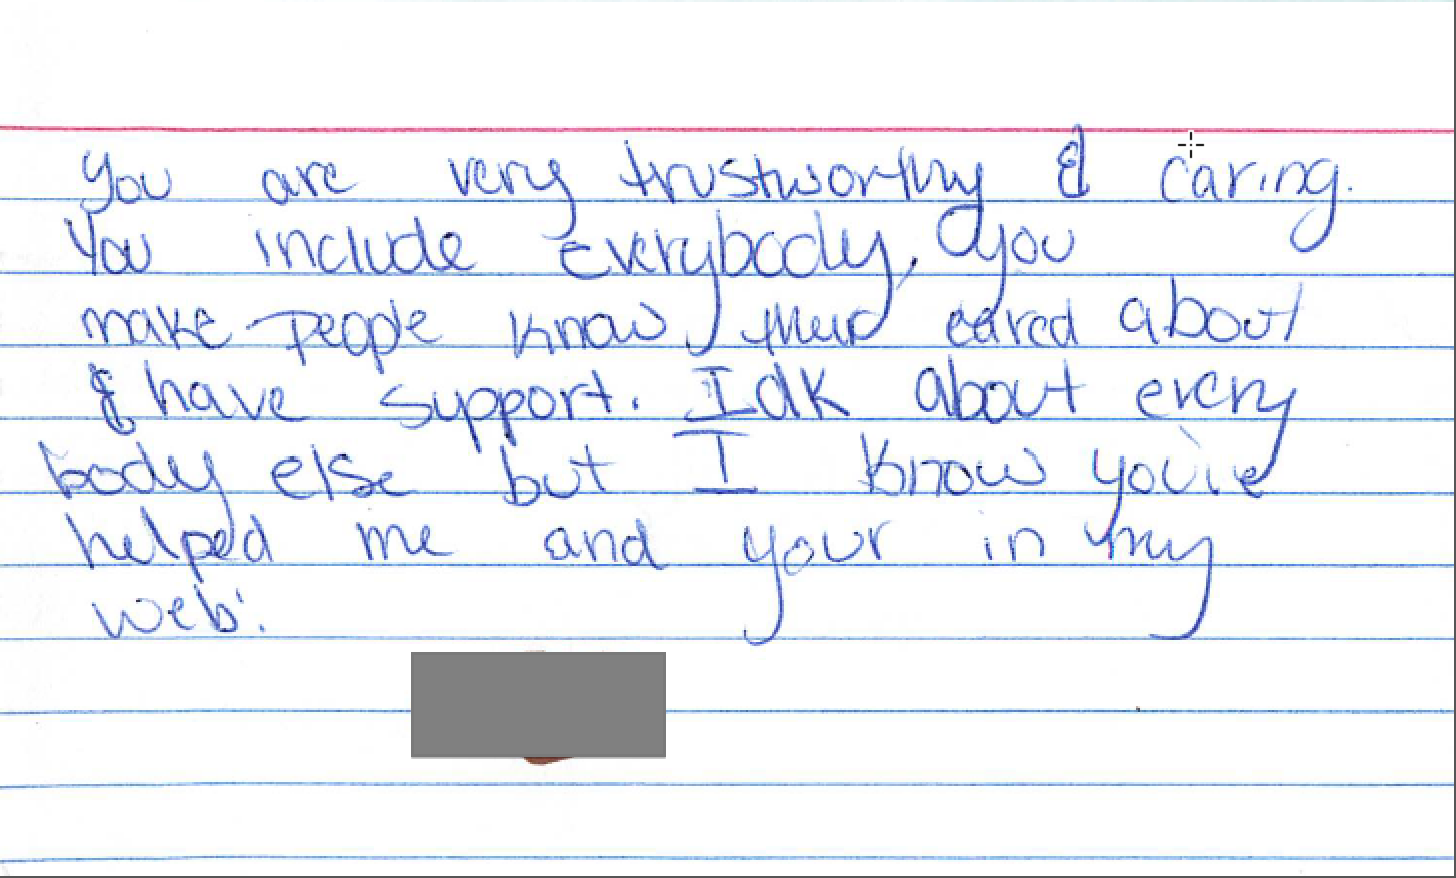 You are very trustworthy & caring.
You include everybody, you
make people know their cared about
& have support. Idk about every
body else but I know you've
helped me and your in my
web!